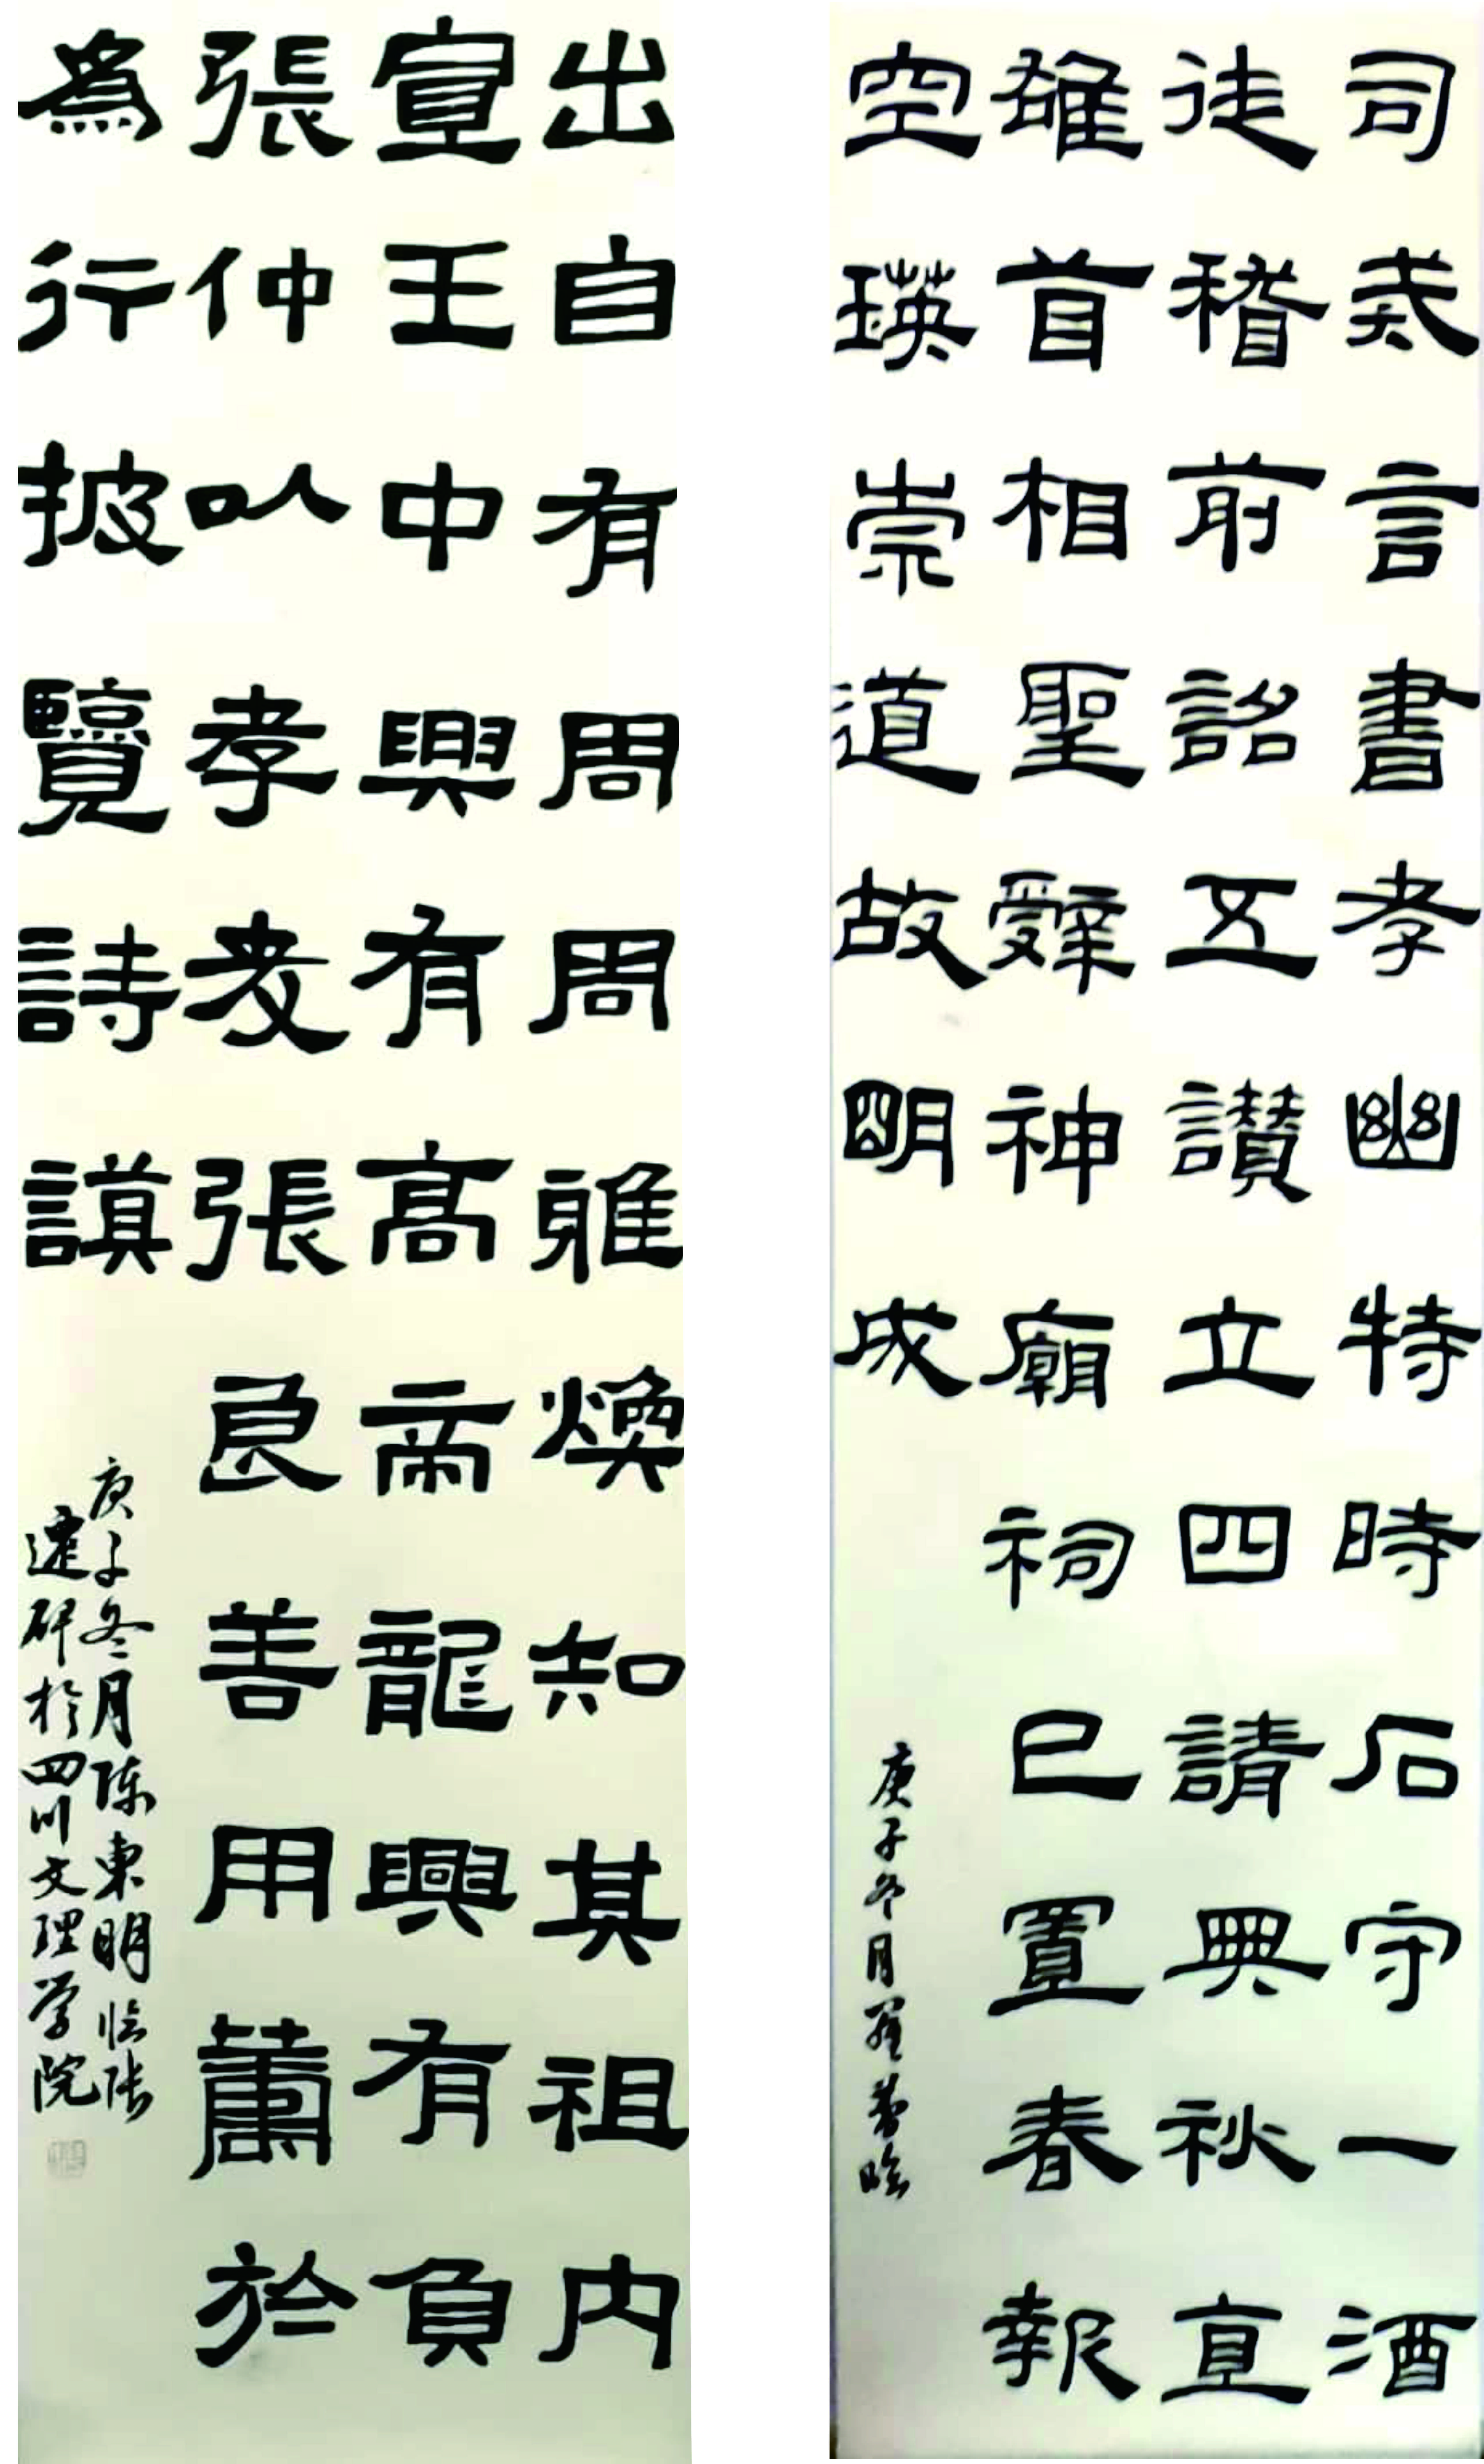 司言書孝幽特時石守一酒
徒稽前詔五讃立四請典秋宣
雄首相聖辭神廟祠已置春報
空瑛崇道故明成
庚子冬月羅临
出自有周周雅煥知其祖内
宣王中興有高帝龍興有負
張仲以孝友張良善用於
為行披覽詩謨
庚子冬月陈東明临张
遷碑於四川文理学院